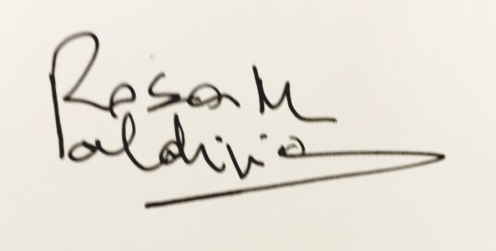 Rosa M
Valdivia